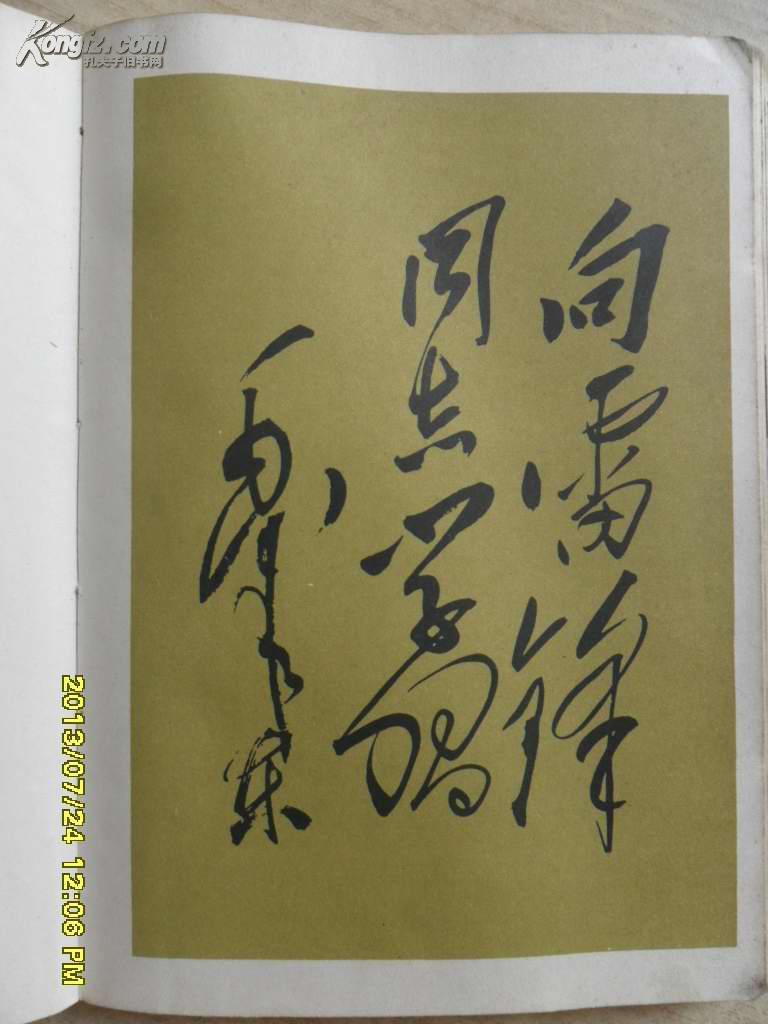 Kongfz.com
孔夫子旧书网
向雷锋
同志学习
毛泽东
2013/07/24 12:06 PM